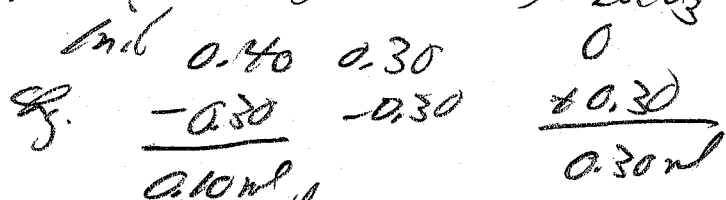 Init 0.40 0.30 0
Chg. -0.30 -0.30 +0.30
0.10 ml 0.30 ml